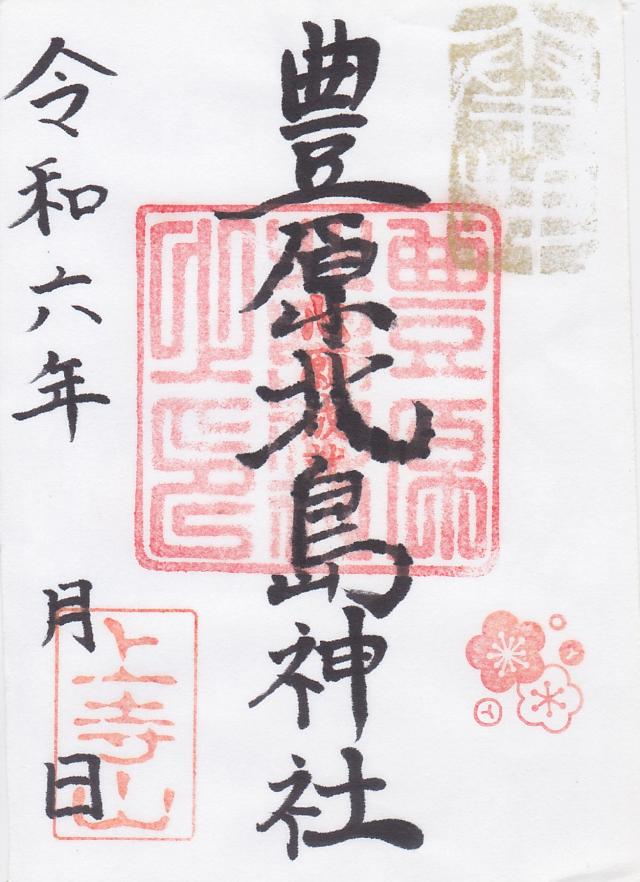 奉拝
豊原北島神社
令和六年 月 日
上寺山